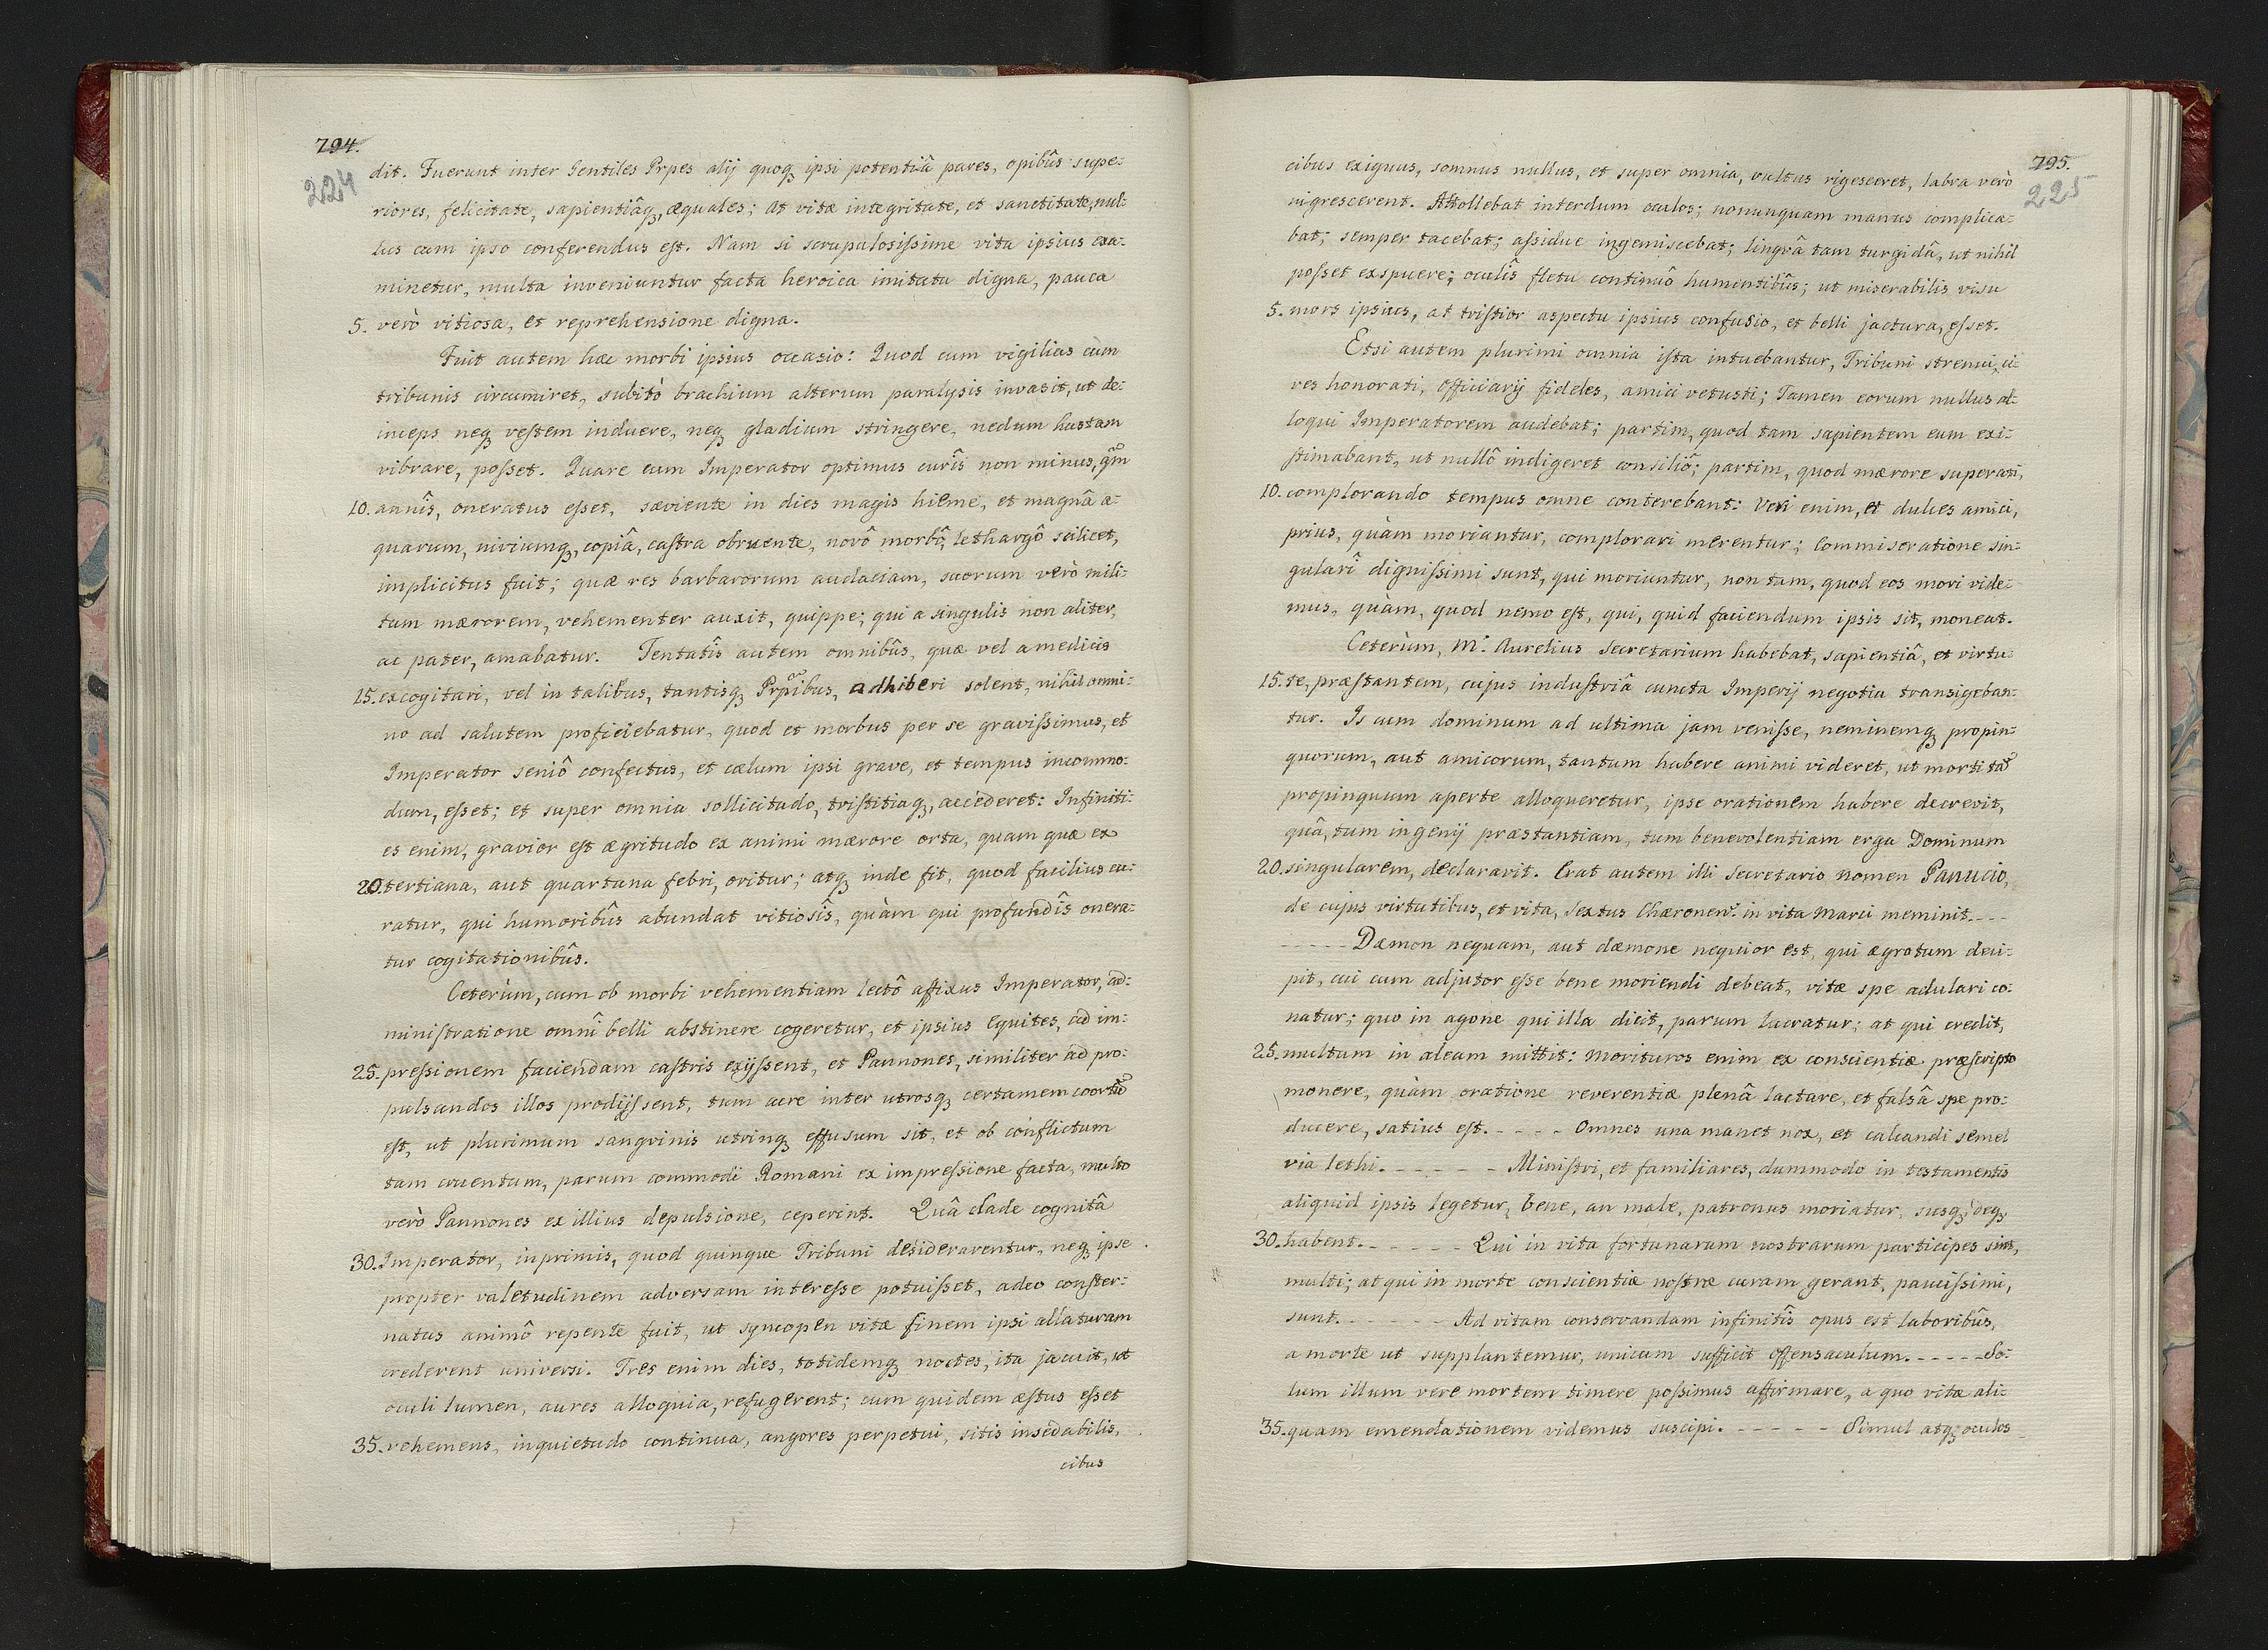 794.
224
dit. Fuerunt inter Gentiles Prpes alij quoq, ipsi potentiâ pares, opibûs supe:
riores, felicitate, sapientiâq, æquales; at vitæ integritate, et sanctitate, nul-
lus cum ipso conferendus est. Nam si scrupulosissime vita ipsius exa-
minetur, multa inveniuntur facta heroica imitatu digna, pauca
5. verò vitiosa, et reprehensione digna.
Fuit autem hæc morbi ipsius occasio: Quod cum vigilias cùm
tribunis circumiret, subitò brachium alterum paralysis invasit, ut de:
inceps neq, vestem induere, neq, gladium stringere, nedum hastam
vibrare, posset. Quare cum Imperator optimus curîs non minus, qm̃
10. annîs, oneratus esset, sæviente in dies magis hieme, et magnâ a-
quarum, niviumq, copiâ, castra obruente, novô morbô, lethargô scilicet,
implicitus fuit; quæ res barbarorum audaciam, suorum verò mili-
tum mærorem, vehementer auxit, quippe; qui a singulis non aliter,
ac pater, amabatur. Tentatîs autem omnibûs, quæ vel a medicis
15. excogitari, vel in talibus, tantisq, Prpibus, adhiberi solent, nihil omni-
no ad salutem proficiebatur, quod et morbus per se gravissimus, et
Imperator seniô confectus, et cælum ipsi grave, et tempus incommo-
dum, esset; et super omnia sollicitudo, tristitiaq, accederet: Infiniti-
es enim, gravior est ægritudo ex animi mærore orta, quam quæ ex
20. tertiana, aut quartana febri, oritur; atq, inde fit, quod facilius cu-
ratur, qui humoribûs abundat vitiosîs, quàm qui profundîs onera-
tur cogitationibûs.
Ceterùm, cum ob morbi vehementiam lectô affixus Imperator, ad:
ministratione omnî belli abstinere cogeretur, et ipsius Equites, ad im-
25. pressionem faciendam castris exijssent, et Pannones, similiter ad pro:
pulsandos illos prodijssent, tum acre inter utrosq, certamen coortũ
est, ut plurimum sangvinis utrinq, effusum sit, et ob conflictum
tam cruentum, parum commodi Romani ex impressione facta, multo
verò Pannones ex illius depulsione, ceperint. Quâ clade cognitâ
30. Imperator, inprimis, quod quinque Tribuni desiderarentur, neq, ipse
propter valetudinem adversam interesse potuisset, adeo conster:
natus animô repente fuit, ut syncopen vitæ finem ipsi allaturam
crederent universi. Tres enim dies, totidemq, noctes, ita jacuit, ut
oculi lumen, aures alloquia, refugerent; cum quidem æstus esset
35. vehemens, inquietudo continua, angores perpetui, sitis insedabilis,
cibus
795.
225
cibus exiguus, somnus nullus, et super omnia, vultus rigesceret, labra verò
nigrescerent. Attollebat interdum oculos; nonunquam manus complica-
bat; semper tacebat; assidue ingemiscebat; lingvâ tam turgidâ, ut nihil
posset exspuere; oculîs fletu continuô humentibûs; ut miserabilis visu
5. mors ipsius, at tristior aspectu ipsius confusio, et belli jactura, esset.
Etsi autem plurimi omnia ista intuebantur, Tribuni strenui, vi-
res honorati, Officiarij fideles, amici vetusti; Tamen eorum nullus al-
loqui Imperatorem audebat; partim, quod tam sapientem eum exi-
stimabant, ut nullô indigeret consiliô; partim, quod mærore superati,
10. complorando tempus omne conterebant: Veri enim, et dulces amici,
prius, quàm moriantur, complorari merentur; Commiseratione sin-
gularî dignissimi sunt, qui moriuntur, non tam, quod eos mori vide-
mus, quàm, quod nemo est, qui, quid faciendum ipsis sit, moneat.
Ceterùm, M. Aurelius Secretarium habebat, sapientiâ, et virtu-
15. te, præstantem, cujus industriâ cuncta Imperij negotia transigeban-
tur. Is cum dominum ad ultima jam venisse, neminemq, propin-
quorum, aut amicorum, tantum habere animi videret, ut morti tã
propinquum aperte alloqueretur, ipse orationem habere decrevit,
quâ, tum ingenij præstantiam, tum benevolentiam erga Dominum
20. singularem, declaravit. Erat autem illi Secretario nomen Panucio,
de cujus virtutibus, et vita, Sextus Chæronens. in vita Marci meminit. ----
----- Dæmon nequam, aut dæmone nequior est, qui ægrotum deci-
pit, cui cum adjutor esse bene moriendi debeat, vitæ spe adulari co-
natur; quo in agone qui illa dicit, parum lucratur; at qui credit,
25. multum in aleam mittit: Morituros enim ex conscientiæ præscripto
monere, quàm oratione reverentiæ plenâ lactare, et falsâ spe pro-
ducere, satius est. ----- Omnes una manet nox, et calcandi semel
via lethi. ------ Ministri, et familiares, dummodo in testamentis
aliquid ipsis legetur, bene, an male, patronus moriatur, susq, deq,
30. habent. ------ Qui in vita fortunarum nostrarum participes sint,
multi; at qui in morte conscientiæ nostræ curam gerant, paucissimi,
sunt. ------ Ad vitam conservandam infinitîs opus est laboribûs,
a morte ut supplantemur, unicum sufficit offensaculum. ----- So-
lum illum vere mortem timere possimus affirmare, a quo vitæ ali-
35. quam emendationem videmus suscipi. ----- Simul atq, oculos